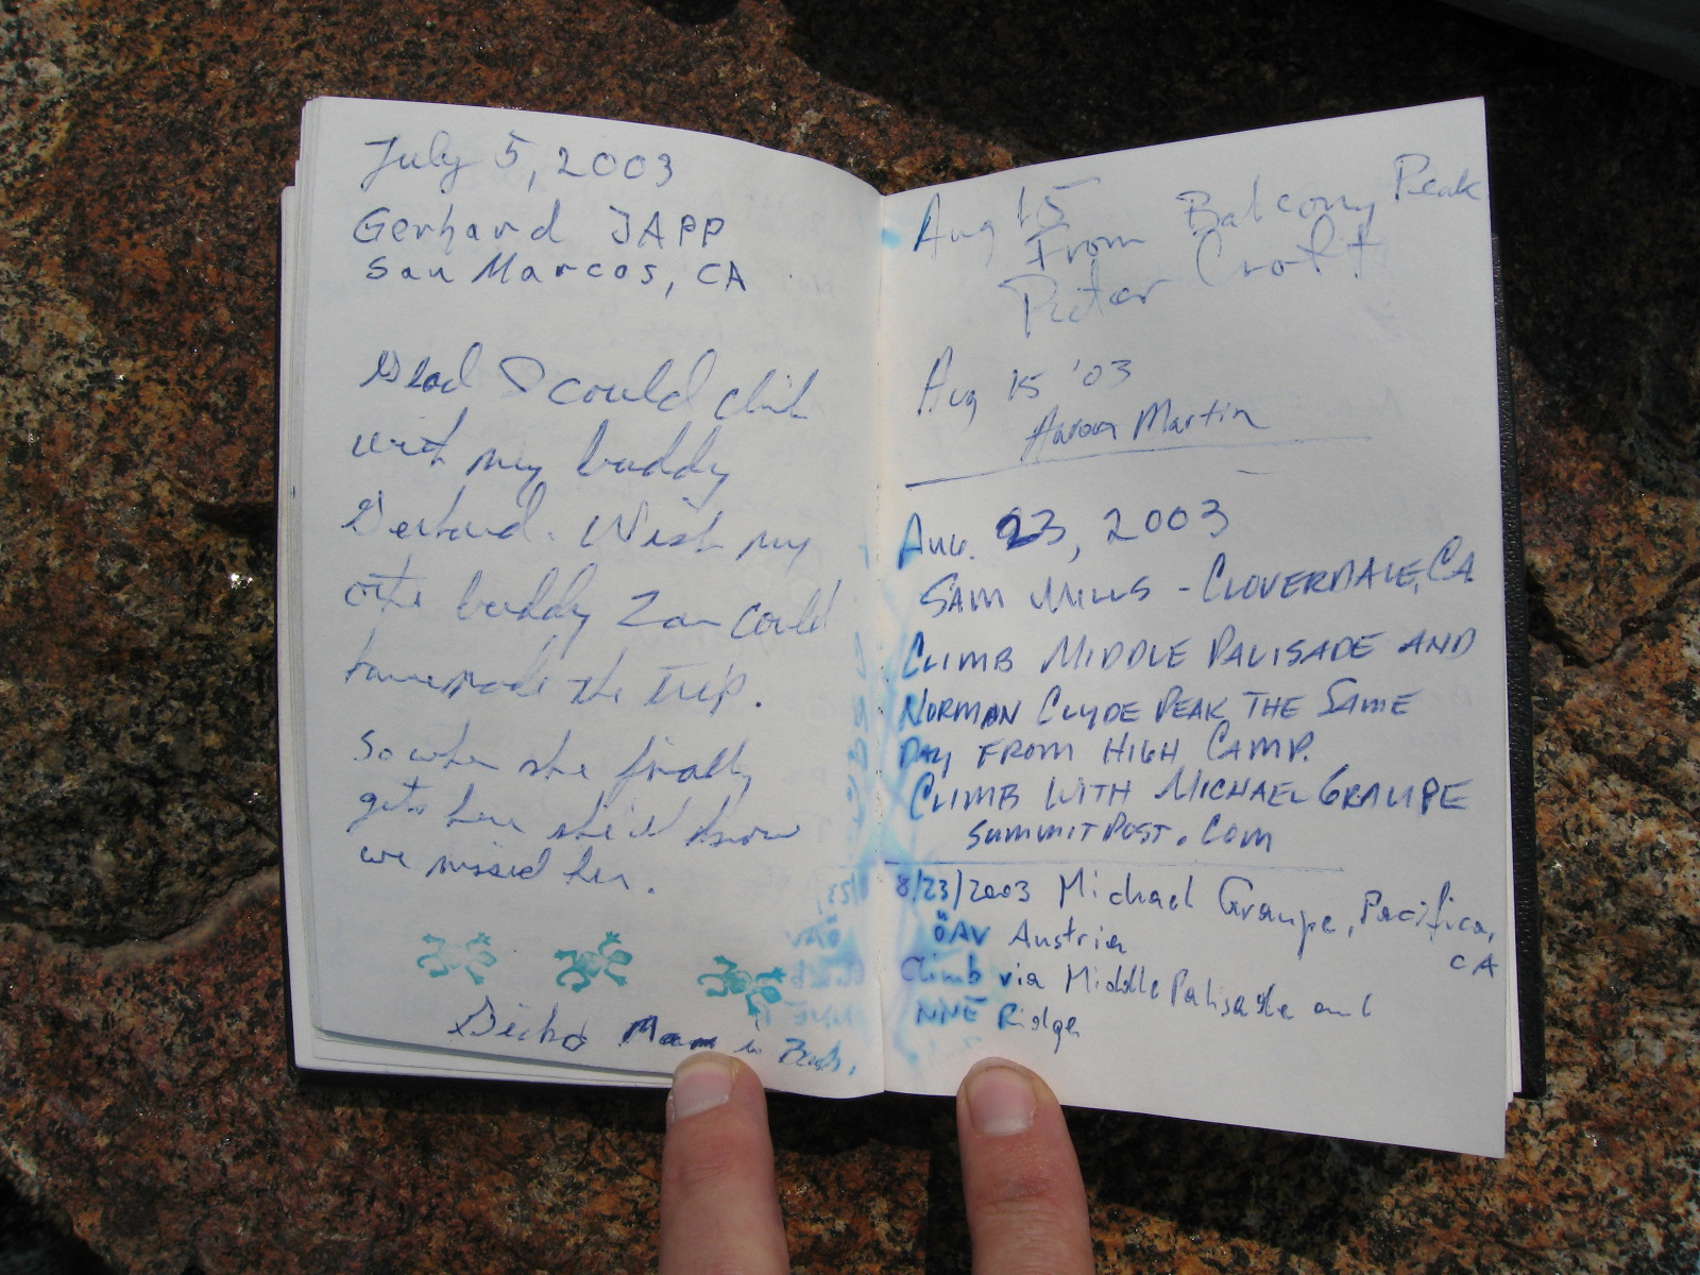 July 5, 2003
Gerhard JAPP
San Marcos, CA
Glad I could climb
with my buddy
Gerhard. Wish my
other buddy Zan could
have made the trip.
So when she finally
gets here she'll know
we missed her.
Gecko Mam in
Aug 15 From Balcony Peak
Peter Croft
Aug 15 '03
Aaron Martin
Aug. 23, 2003
SAM MILLS - CLOVERDALE, CA
CLIMB MIDDLE PALISADE AND
NORMAN CLYDE PEAK THE SAME
DAY FROM HIGH CAMP.
CLIMB WITH MICHAEL GRAUPE
SUMMITPOST.COM
8/23/2003 Michael Graupe, Pacifica,
CA
ÖAV Austria
Climb via Middle Palisade and
NNE Ridge